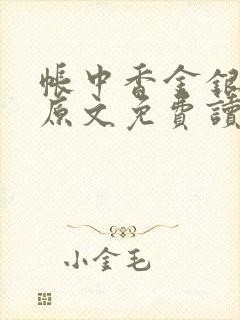 帳中香金銀
原文免費讀
小金毛